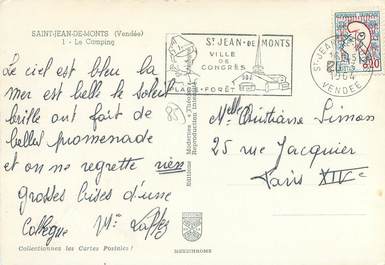 SAINT-JEAN-DE-MONTS (Vendée)
1 - Le Camping
Le ciel est bleu la
mer est belle le soleil
brille ont fait de
belles promenade
et on ne regrette rien
grosses bises d'une
Collègue
Collectionnez les Cartes Postales !
Editions Modernes « Théojac »
Reproduction
83
MEXICHROME
ST JEAN-DE-MONTS
VILLE
DE
CONGRÈS
PLAGE-FORÊT
ST-JEAN
1964
VENDEE
0,20
Melle Christiane Simon
25 rue Jacquier
Paris XIVe